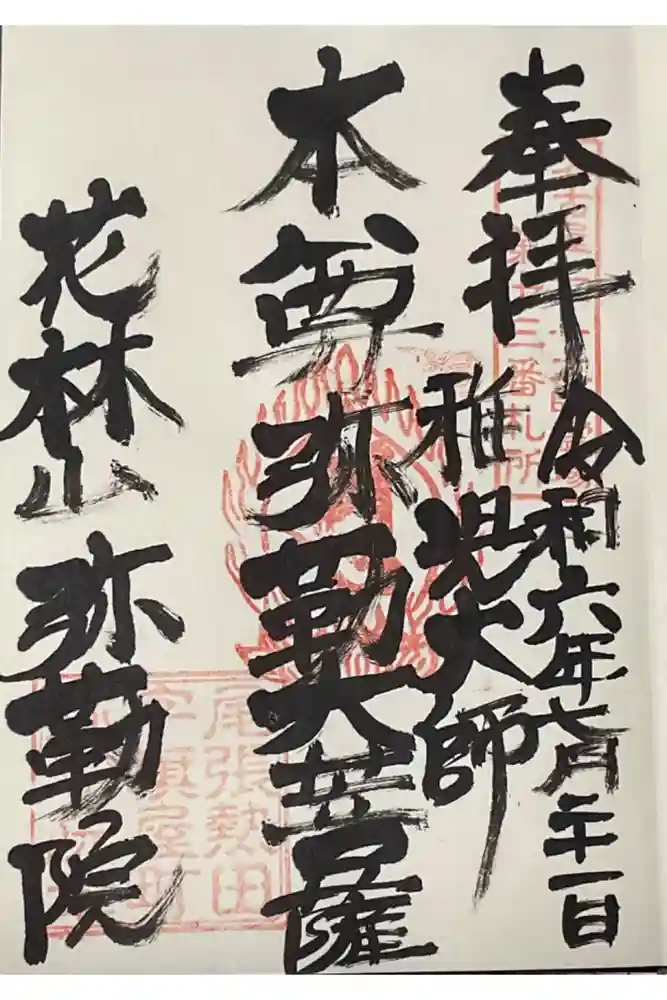 奉拝
令和六年七月二十一日
稚児大師
本尊弥勒大菩薩
花林山弥勒院
三番札所
尾張熱田